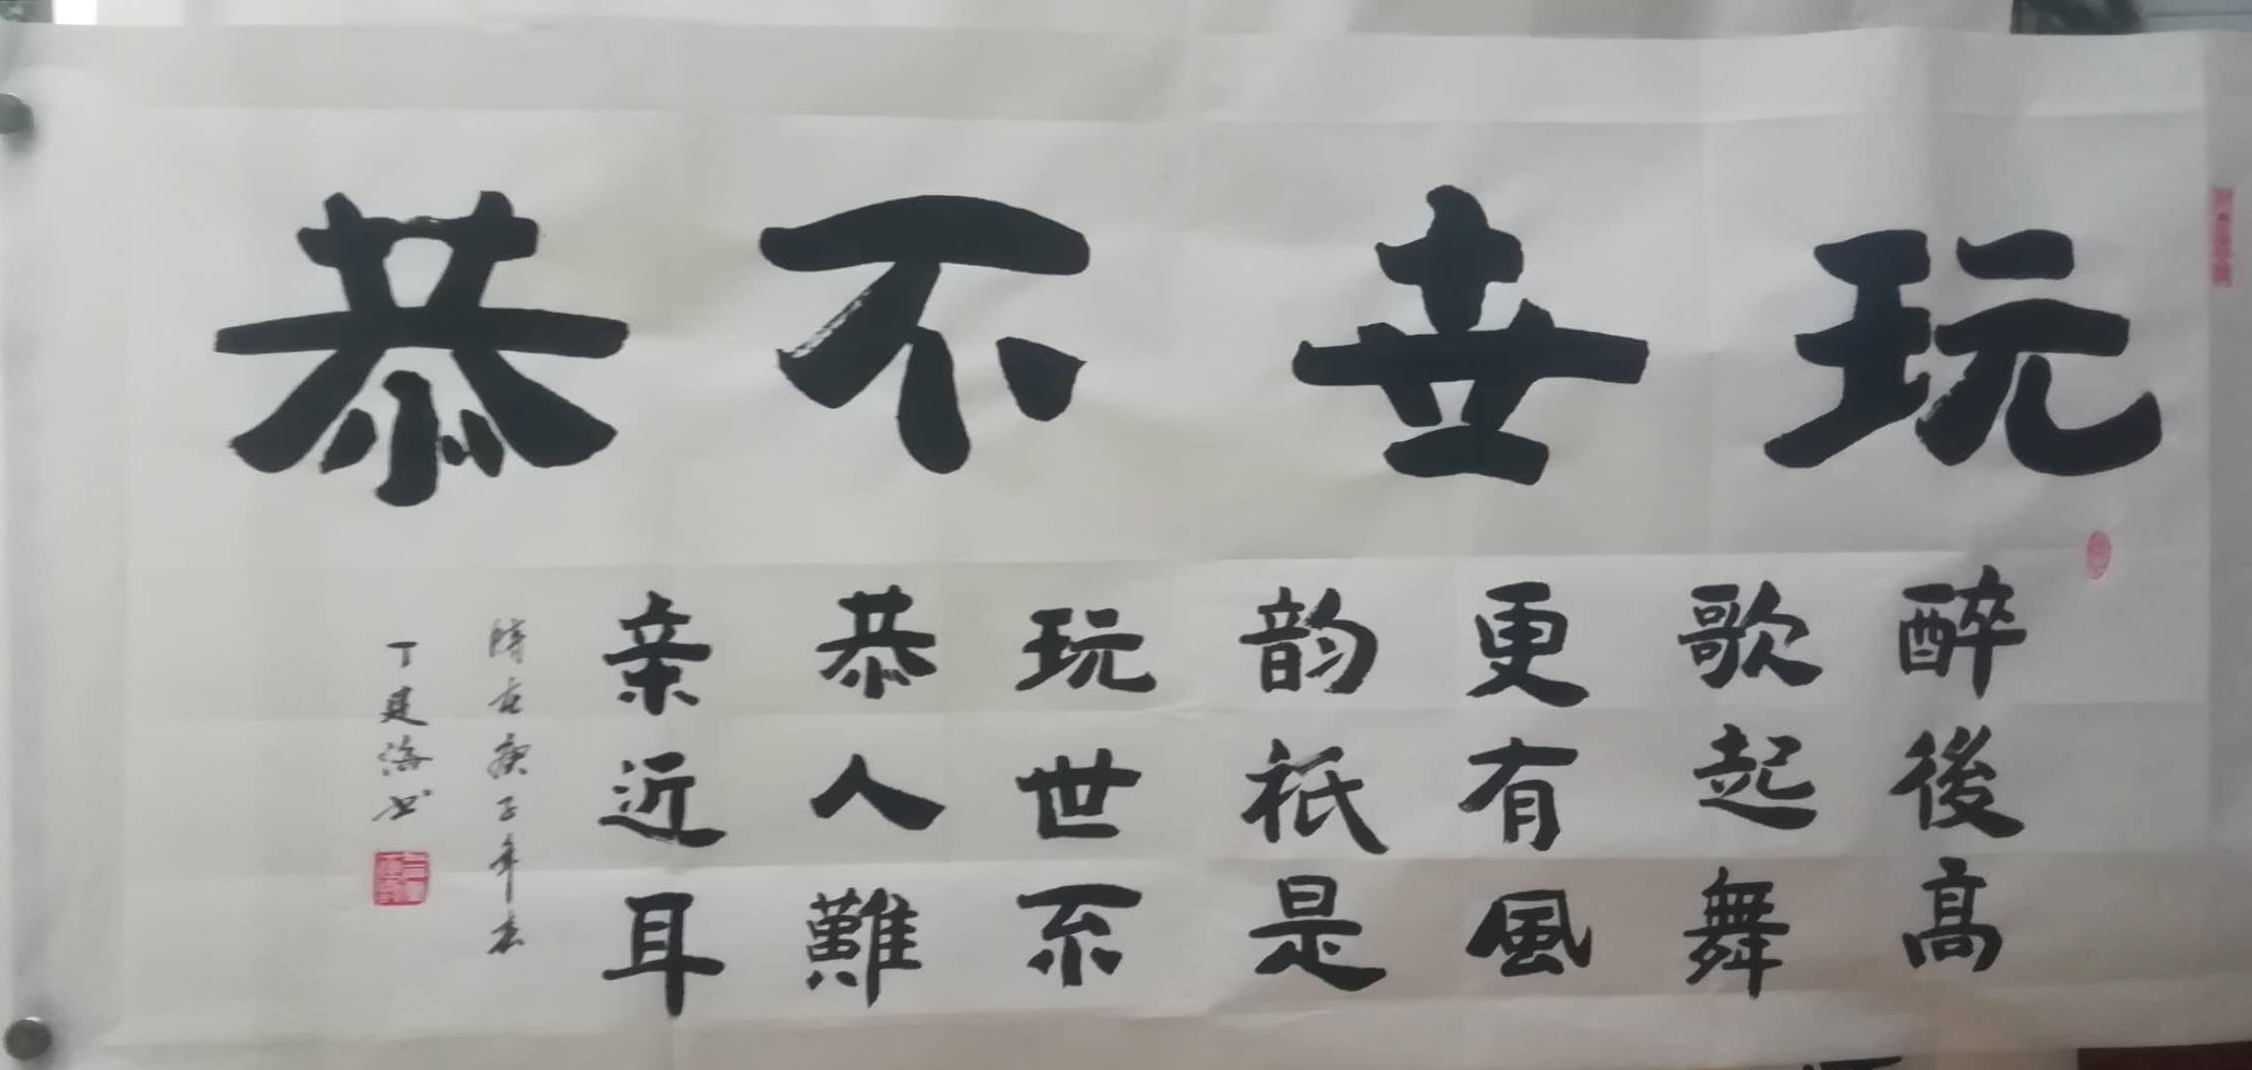 玩世不恭
醉後高
歌起舞
更有風
韵祇是
玩世不
恭人難
亲近耳
時在庚子年春
丁建海书